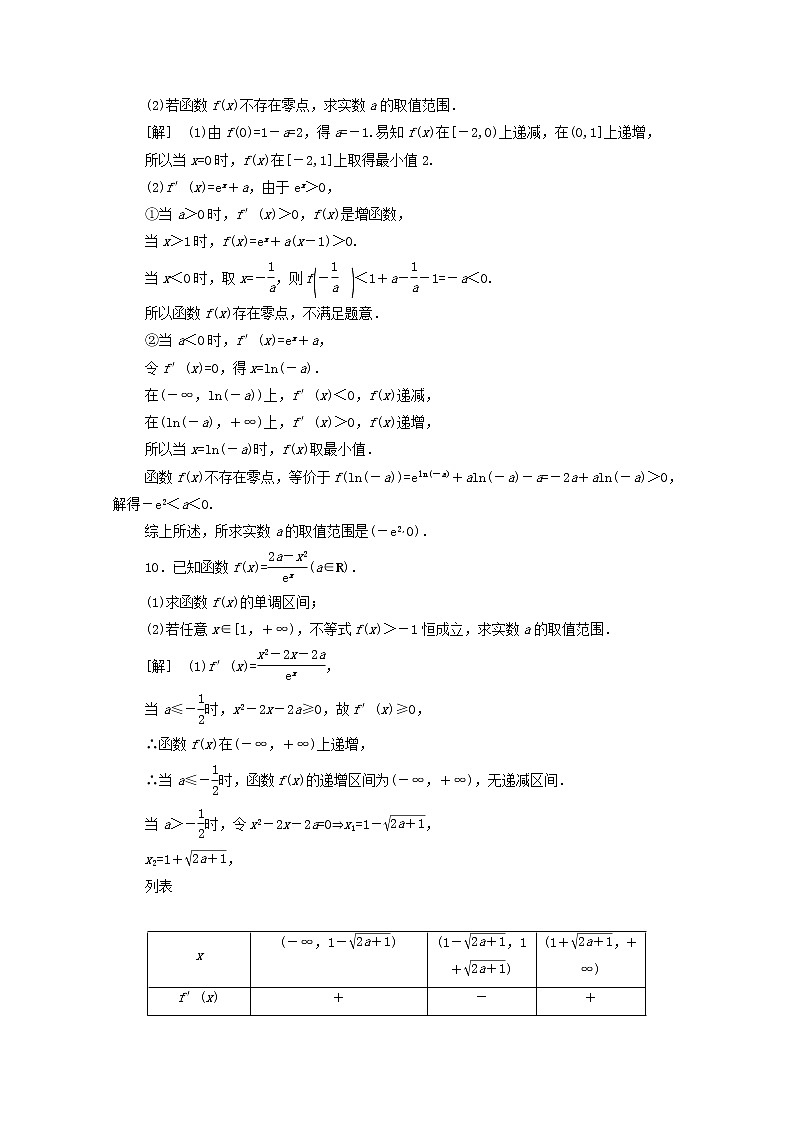 (2)若函数f(x)不存在零点,求实数a的取值范围.
[解] (1)由f(0)=1-a=2,得a=-1.易知f(x)在[-2,0)上递减,在(0,1]上递增,
所以当x=0时,f(x)在[-2,1]上取得最小值2.
(2)f′(x)=eˣ+a,由于eˣ>0,
①当a>0时,f′(x)>0,f(x)是增函数,
当x>1时,f(x)=eˣ+a(x-1)>0.
当x<0时,取x=-1/a,则f(-1/a)<1+a-1/a-1=-a<0.
所以函数f(x)存在零点,不满足题意.
②当a<0时,f′(x)=eˣ+a,
令f′(x)=0,得x=ln(-a).
在(-∞,ln(-a))上,f′(x)<0,f(x)递减,
在(ln(-a),+∞)上,f′(x)>0,f(x)递增,
所以当x=ln(-a)时,f(x)取最小值.
函数f(x)不存在零点,等价于f(ln(-a))=e^{ln(-a)}+aln(-a)-a=-2a+aln(-a)>0,
解得-e²<a<0.
综上所述,所求实数a的取值范围是(-e²,0).
10.已知函数f(x)=(2a-x²)/eˣ(a∈R).
(1)求函数f(x)的单调区间;
(2)若任意x∈[1,+∞),不等式f(x)>-1恒成立,求实数a的取值范围.
[解] (1)f′(x)=(x²-2x-2a)/eˣ,
当a≤-1/2时,x²-2x-2a≥0,故f′(x)≥0,
∴函数f(x)在(-∞,+∞)上递增,
∴当a≤-1/2时,函数f(x)的递增区间为(-∞,+∞),无递减区间.
当a>-1/2时,令x²-2x-2a=0⇒x₁=1-√(2a+1),
x₂=1+√(2a+1),
列表
x (-∞,1-√(2a+1)) (1-√(2a+1),1+√(2a+1)) (1+√(2a+1),+∞)
f′(x) + - +